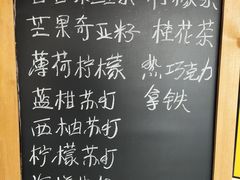 芒果奇亚籽
薄荷柠檬
蓝柑苏打
西柚苏打
柠檬苏打
桂花茶
热巧克力
拿铁